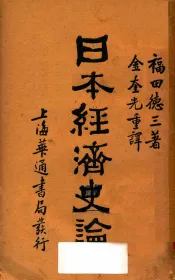 福田德三著
金奎光重譯
日本經濟史論
上海華通書局發行